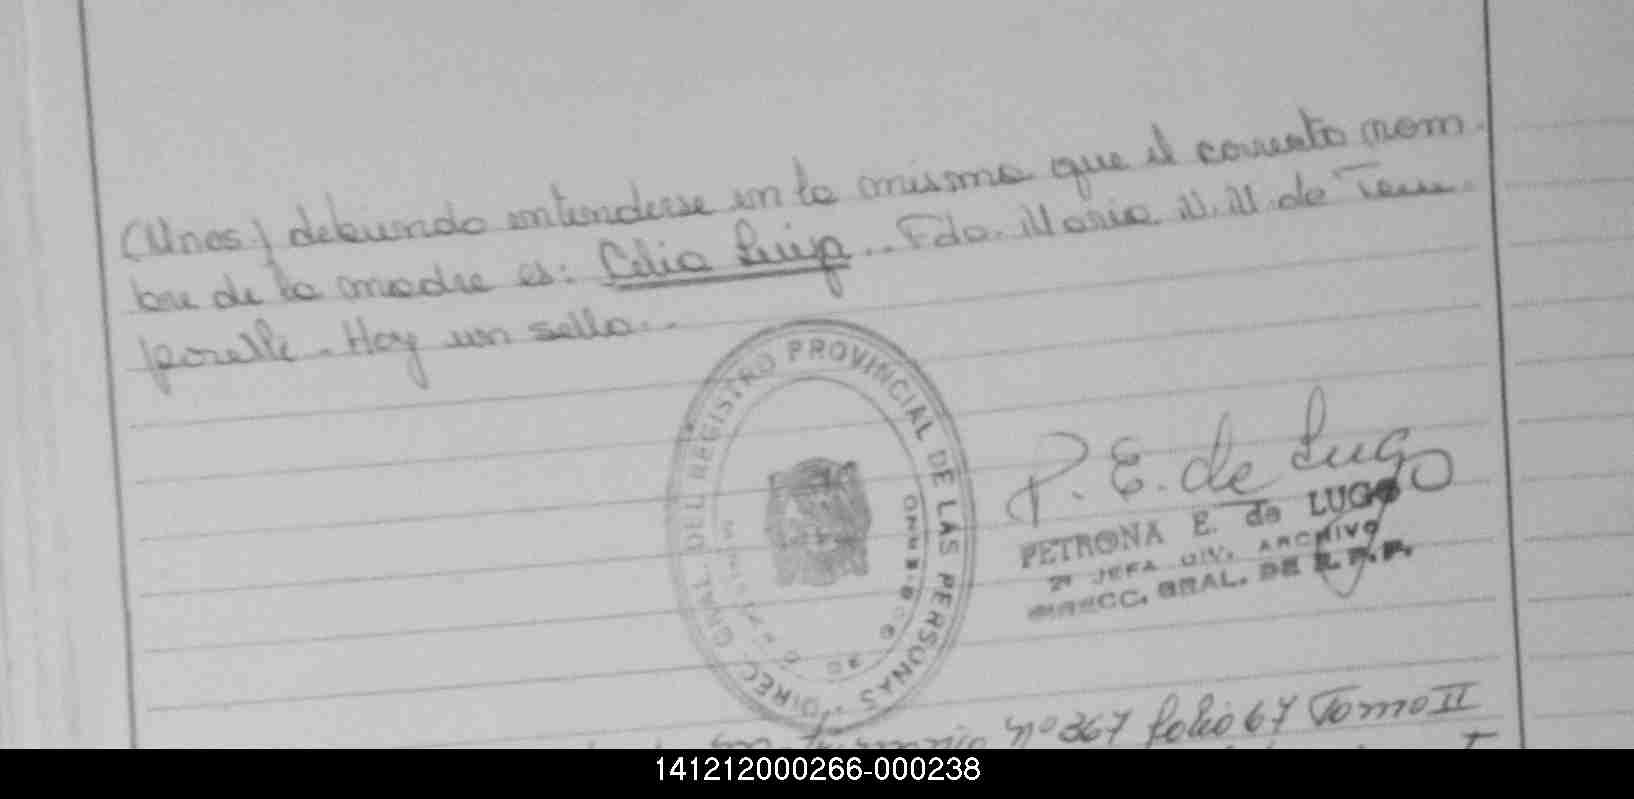 (Unos) debiendo entenderse en la misma que el correcto nom-
bre de la madre es: Celia Luisa.. Fdo. María N. M. de
Hay un sello..
DIREC. GRAL. DEL REGISTRO PROVINCIAL DE LAS PERSONAS
P. E. de Lugo
PETRONA E. de LUGO
2ª JEFA DIV. ARCHIVO
DIRECC. GRAL. DE R.P.P.
nº 367 folio 67 Tomo II
141212000266-000238